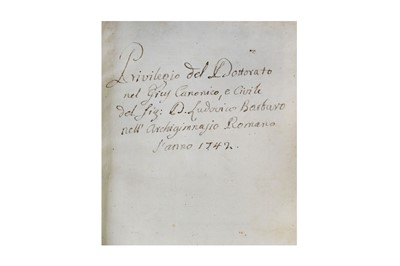 Privilegio del Dottorato
nel Gius Canonico, e Civile
del Sig: D. Ludovico Barbaro
nell' Archiginnasio Romano
l'anno 1742.